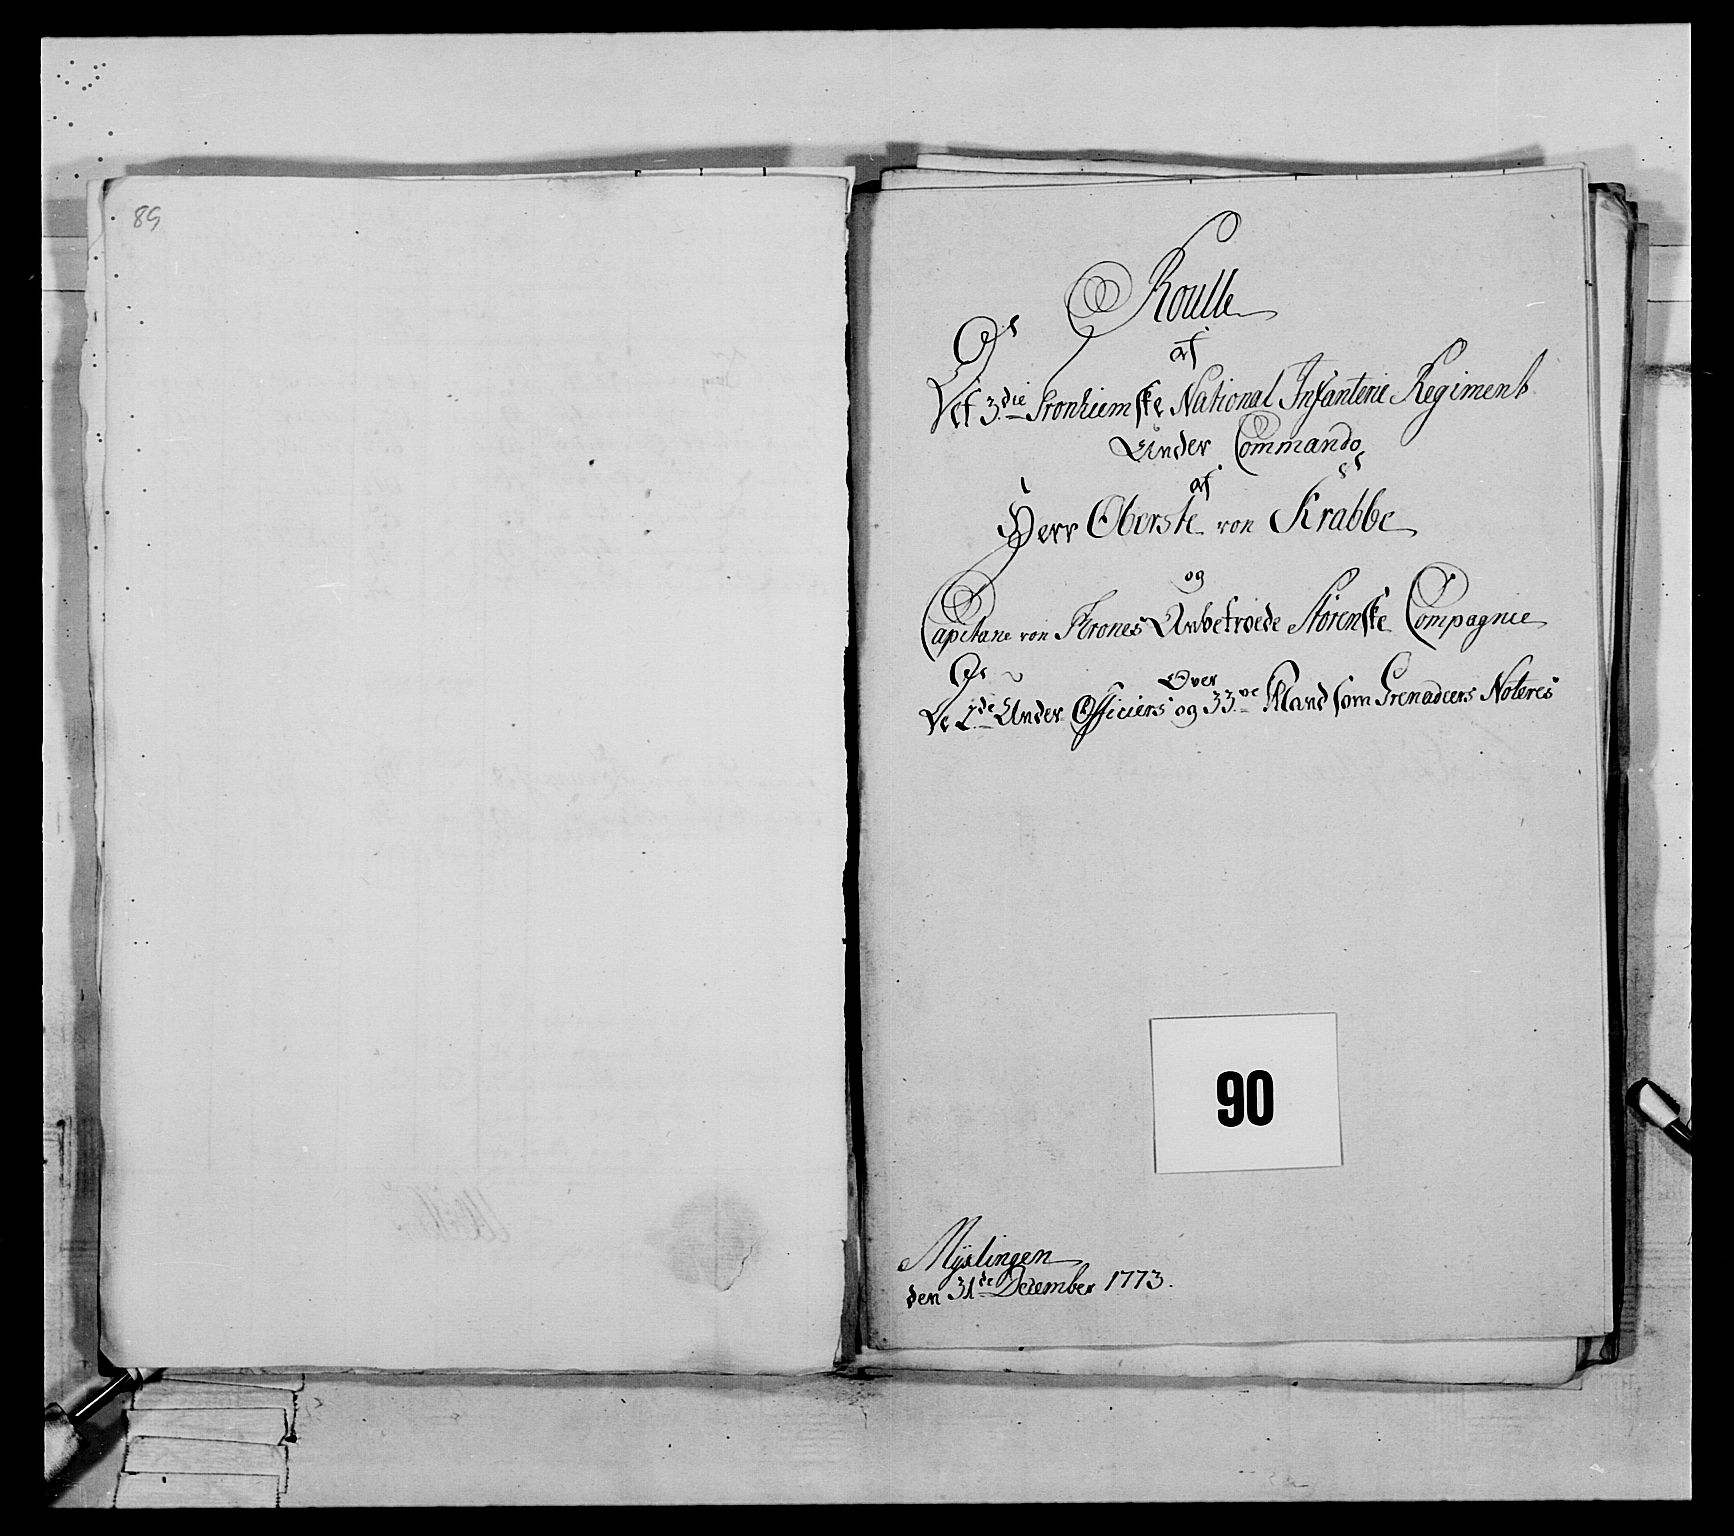 89
Roulle
af
Det 3die Tronhiemske National Infanterie Regiment
Under Commando
af
Herr Oberste von Krabbe
og
Capitane von Krones Anbetroede Størenske Compagnie
Over
De 2de Under Officiers og 33ve Mand som Grenadeers Noteres
90
Myslingen
den 31de December 1773.